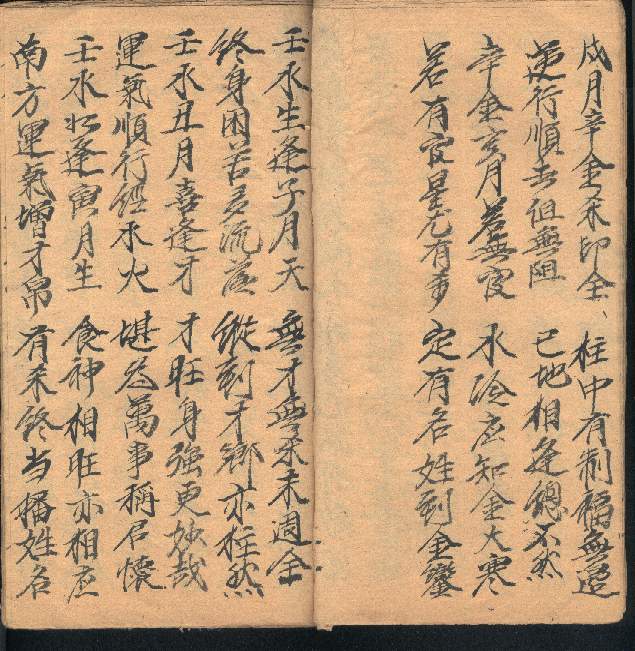 戌月辛金禾印全、柱中有制福無边
逆行順去但無阻 巳地相逢總不然
辛金亥月若無官 水冷应知金大寒
若有官星尤有多 定有名姓到金鑾
壬水生逢子月天 無才無禾未週全
終身困苦多流蕩 縱到才鄉亦枉然
壬水丑月喜逢才 才旺身強更妙哉
運氣順行經水火 堪为萬事稱君懷
壬水忪逢寅月生 食神相旺亦相应
南方運氣增才帛 有禾終当播姓名